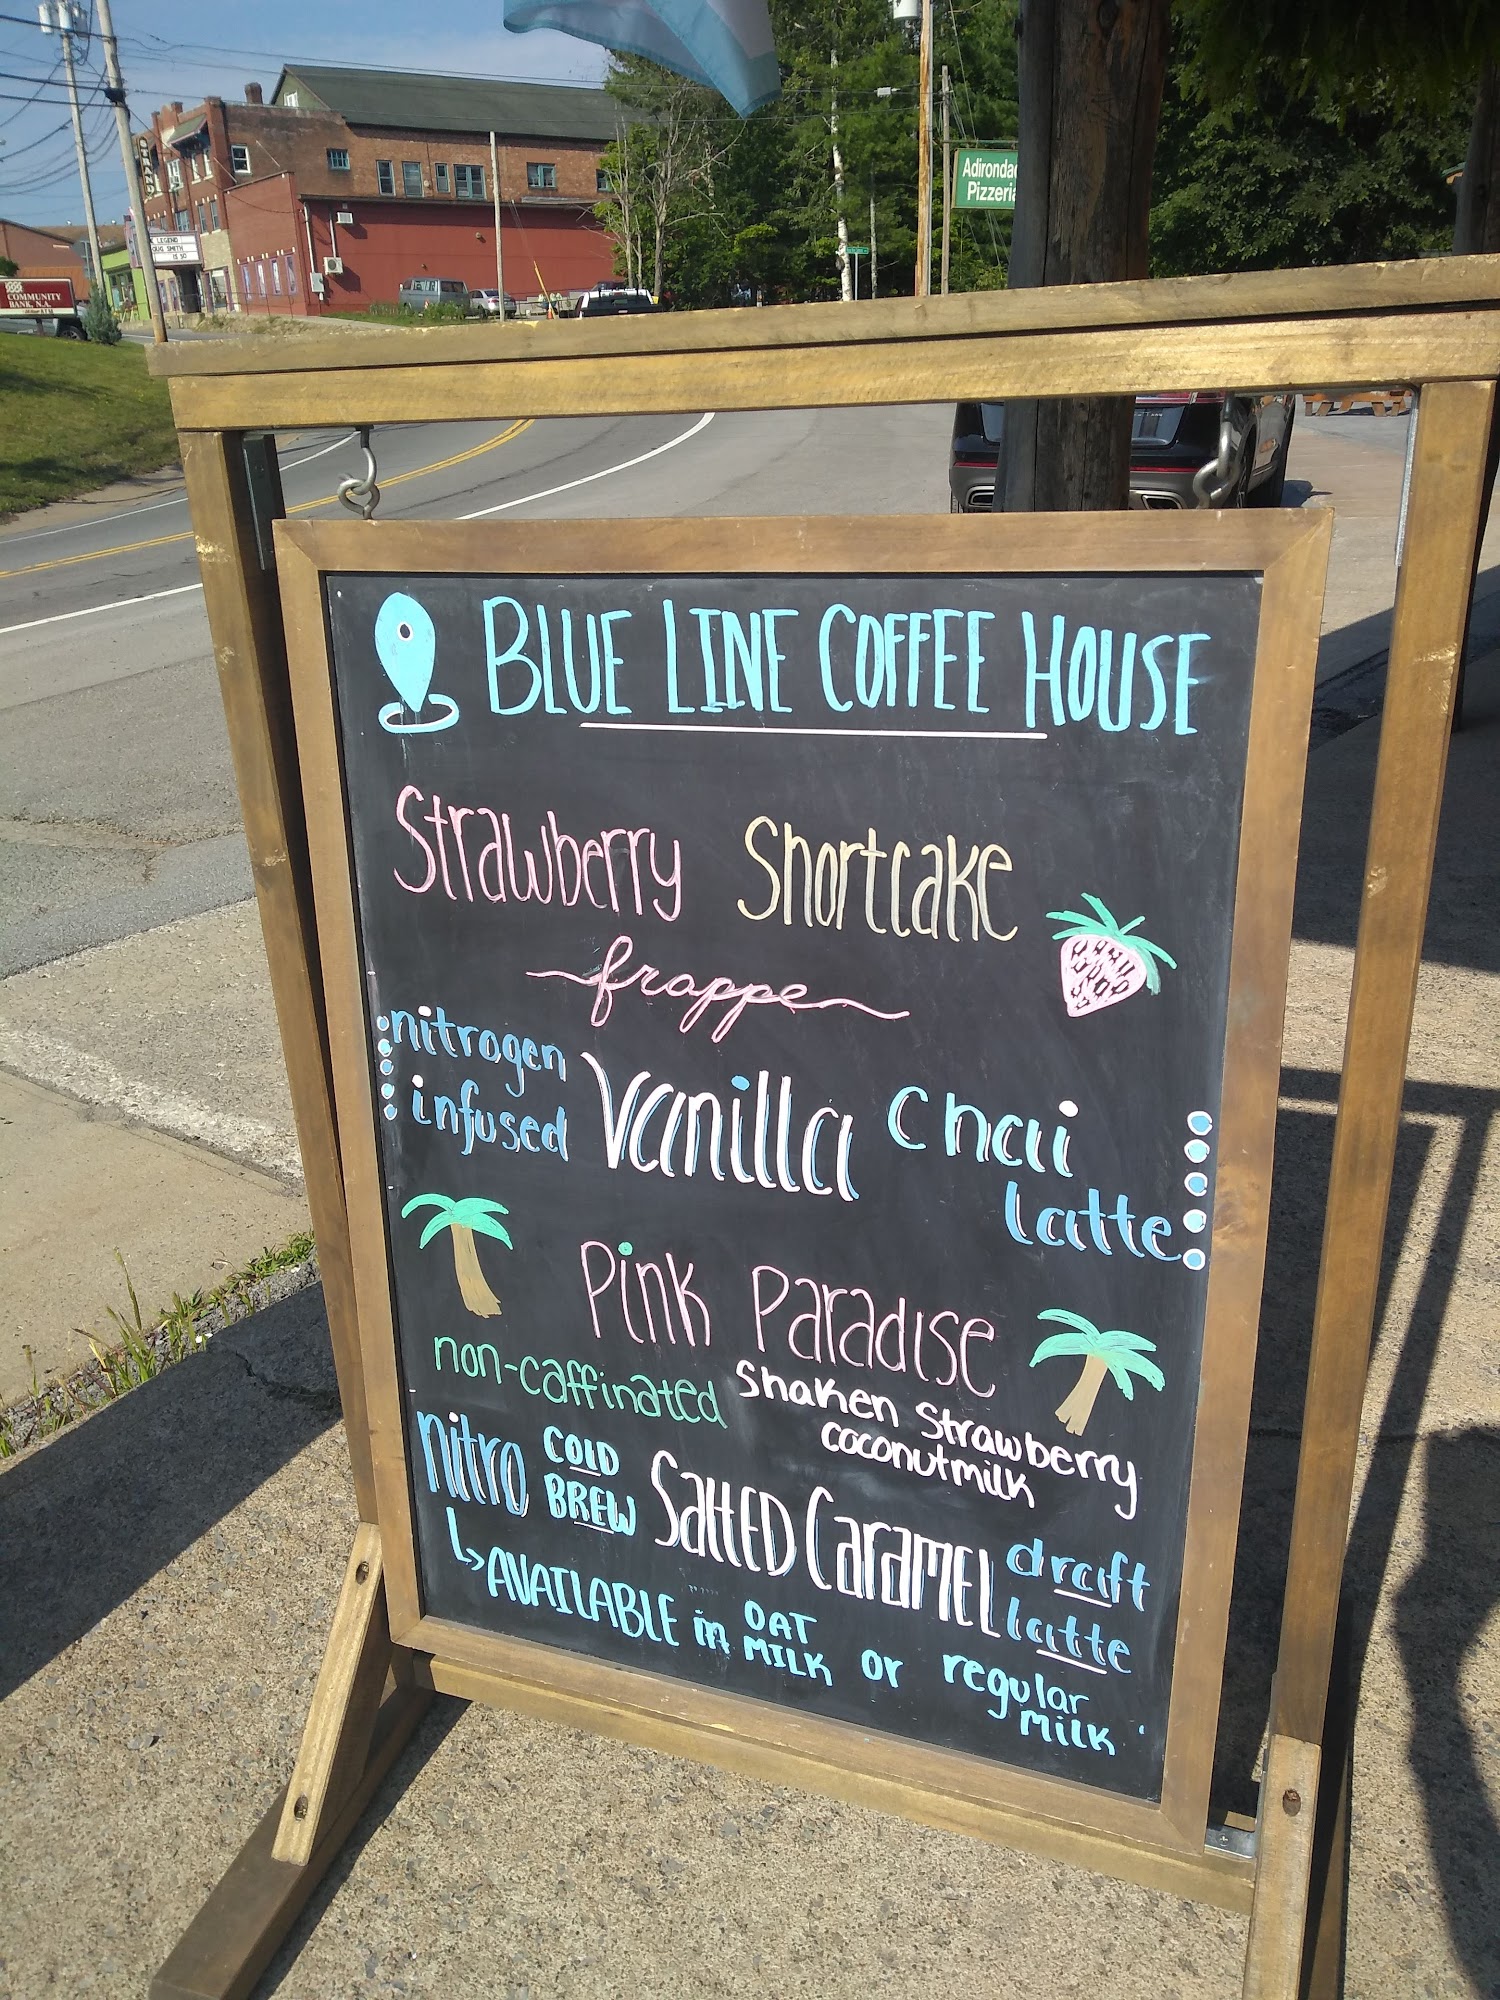 STRAND
K LEGEND
OUG SMITH
IS 50
COMMUNITY
BANK, N.A.
Adirondac
Pizzeria
BLUE LINE COFFEE HOUSE
Strawberry Shortcake
frappe
nitrogen
infused
Vanilla chai
latte
Pink Paradise
non-caffinated
Shaken Strawberry
coconutmilk
nitro COLD
BREW
Salted Caramel draft
latte
AVAILABLE in OAT
MILK or regular
MILK